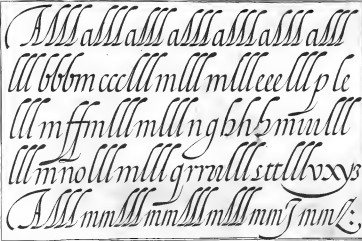 Alll alllalll alllalllalllalll
lll bbbm ccclll mlll mllleeelll p le
lll mffmlll mlll n g h h h miulll
lll mnolll mlll q rrrulll sttlllvxyz
Alll mmlllmmlllmlllmmJ mm L:.